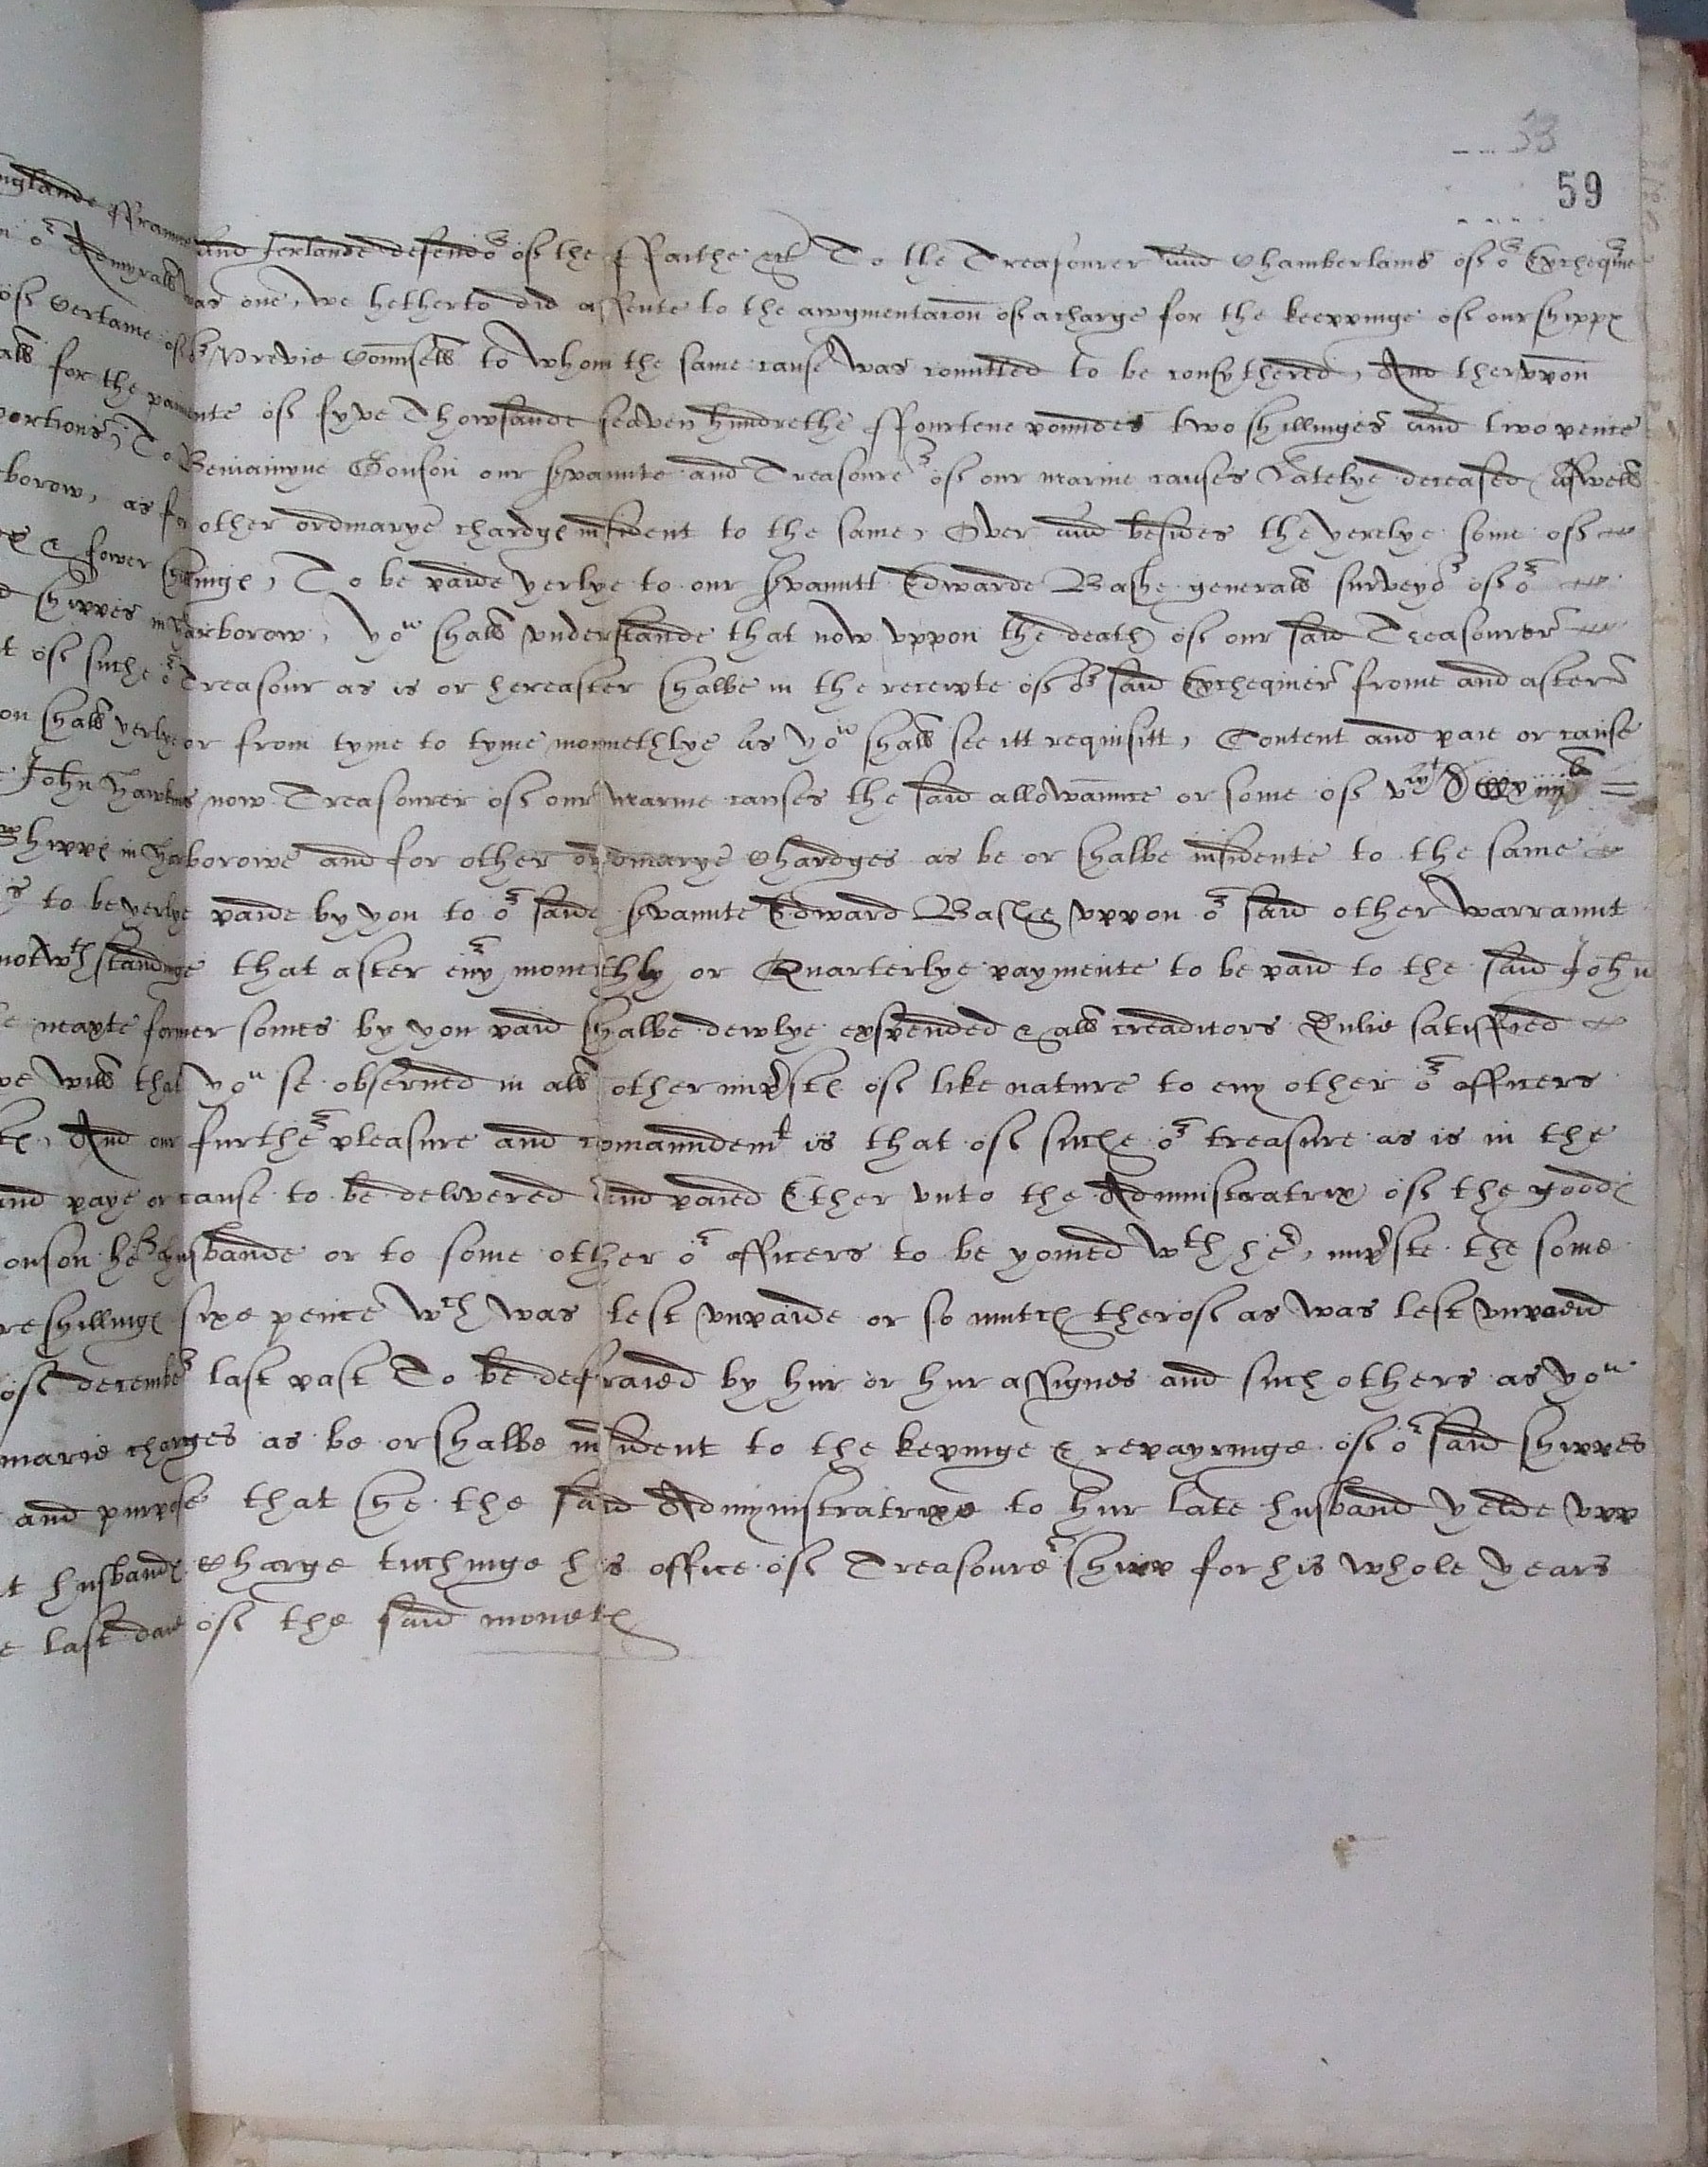 33
59
nglande ffraunce and Ierlande defendor of the ffaithe &c To the Treasourer and Chamberlains of or Exchequer
or Admyrall was one, we hetherto did assente to the awgmentacion of a charge for the keeppinge of our shippes
of Certaine of or Previe Counsell to whom the same cause was comitted to be consythered, And theruppon
all for the paimente of fyve Thowsande seaven hundrethe ffourtene poundes two shillinges and two pence
portions, To Beniamyne Gonson our servannte and Treasourer of our marine causes Latelye deceased, Aswell
borow, as for other ordinarye chardges insident to the same, Over and besides the yerelye some of
& fower shillinges, To be paide yerlye to our servanntt Edwarde Bashe generall surveyor of or
d shippes in harborow, you shall understande that now uppon the death of our said Treasourer
t of suche or Treasour as is or hereafter shalbe in the receipte of or said Exchequier frome and after
on shall yerlye or from tyme to tyme monnethlye as you shall see itt requisitt, Content and paie or cause
John Hawkins now Treasourer of our marine causes the said allowannce or some of
Shippes in harborowe and for other ordinarye chardges as be or shalbe insidente to the same
s to be yerlye paide by you to or saide servannte Edward Bashe uppon or said other warrannt
notwthstandinge that after eny monethly or Quarterlye paymente to be paid to the said John
e nexte former somes by you paid shalbe dewlye expended & all creaditors dulie satisffied
we will that you se observed in all other imprestes of like nature to eny other or officers
tes, And our further pleasure and comanndemt is that of suche or treasure as is in the
and paye or cause to be delivered and paied Ether unto the Administratrix of the goodes
onson her husbande or to some other or officers to be yoined wth her, impreste the some
re shillinges sixe pence wch was left unpaide or so mutch therof as was left unpaid
of december last past To be defraied by hur or hur assignes and such others as you
inarie charges as be or shalbe insident to the kepinge & repayringe of or said shippes
and purpose that she the said Administratrixe to hur late husband yelde upp
t husbandes charge tuchinge his office of Treasourershipp for his whole years
e last daie of the said moneth